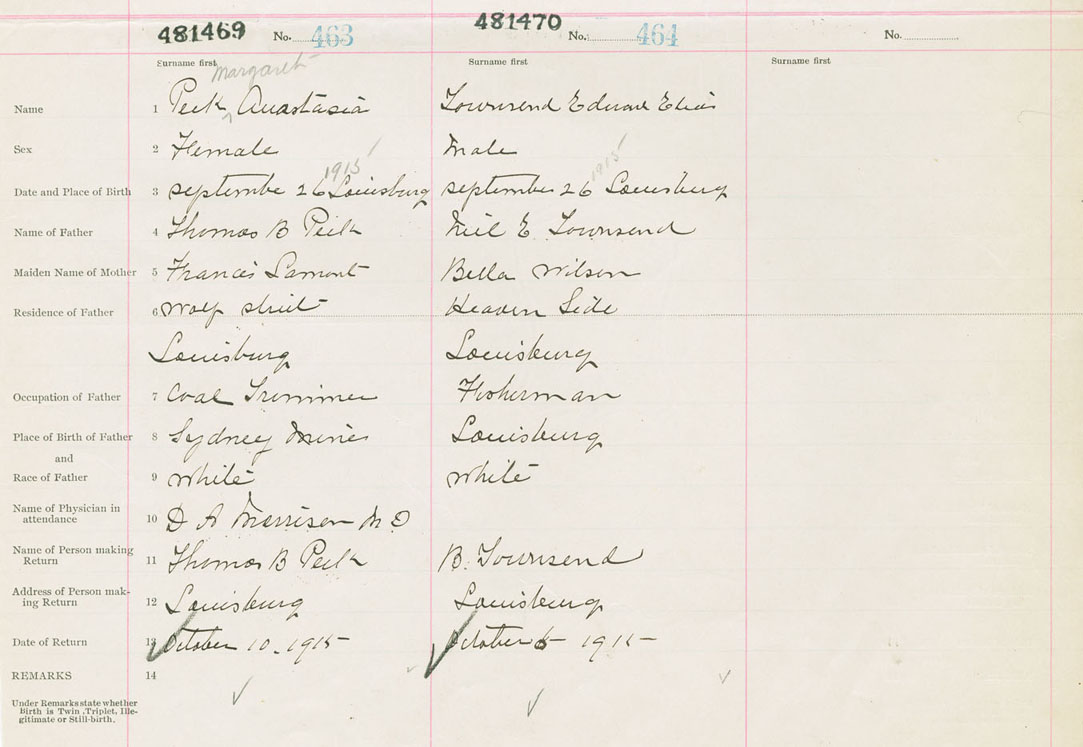 481469 No. 463 481470 No. 464 No.
Surname first Surname first Surname first
Margaret
Name 1 Peck Anastasia Townsend Edward Elias
Sex 2 Female Male
1915 1915
Date and Place of Birth 3 septembe 26 Louisburg september 26 Louisburg
Name of Father 4 Thomas B Peck Neil E. Townsend
Maiden Name of Mother 5 Francis Lamont Bella Wilson
Residence of Father 6 Wolf street Side
Louisburg Louisburg
Occupation of Father 7 Coal Trimmer Fisherman
Place of Birth of Father 8 Sydney Mines Louisburg
and
Race of Father 9 White White
Name of Physician in
attendance 10 D A Morrison M D
Name of Person making
Return 11 Thomas B Peck B. Townsend
Address of Person mak-
ing Return 12 Louisburg Louisburg
Date of Return 13 October 10. 1915 October 1915
REMARKS 14
Under Remarks state whether
Birth is Twin, Triplet, Ille-
gitimate or Still-birth.